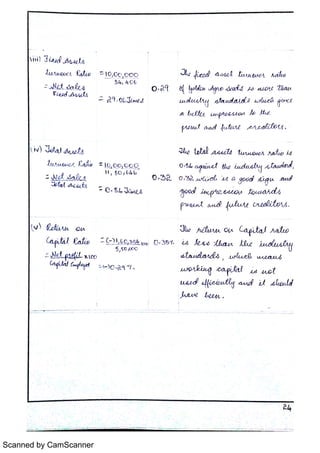 iii) Fixed Assets
turnover Ratio = 10,00,000
34,406
= Net Sales
Fixed Assets
= 29.06 Times
0.29
The fixed asset turnover ratio
of Golden Agro seeds is more than
industry standards which gives
a better impression to the
present and future creditors.
iv) Total Assets
turnover Ratio = 10,00,000
11,50,646
= Net Sales
Total Assets
= 0.86 Times
0.32
The total assets turnover ratio is
0.86 against the industry standard,
0.32 which is a good sign and
good impression towards
present and future creditors.
(v) Return on
Capital Ratio = (-)1,60,
5,50,000
= Net profit x100
Capital Employed
= (-)0.29%
0.38%
The return on Capital ratio
is less than the industry
standards, which means
working capital is not
used efficiently and it should
have been.
24
Scanned by CamScanner